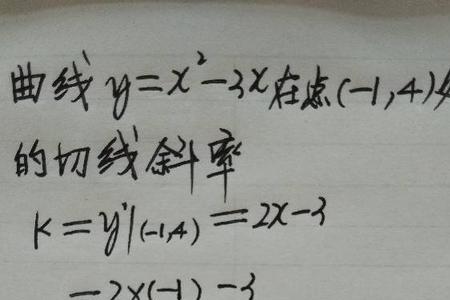 曲线 y=x²-3x在点(-1,4)处
的切线斜率
K=y'|(-1,4)=2x-3
=2×(-1)-3